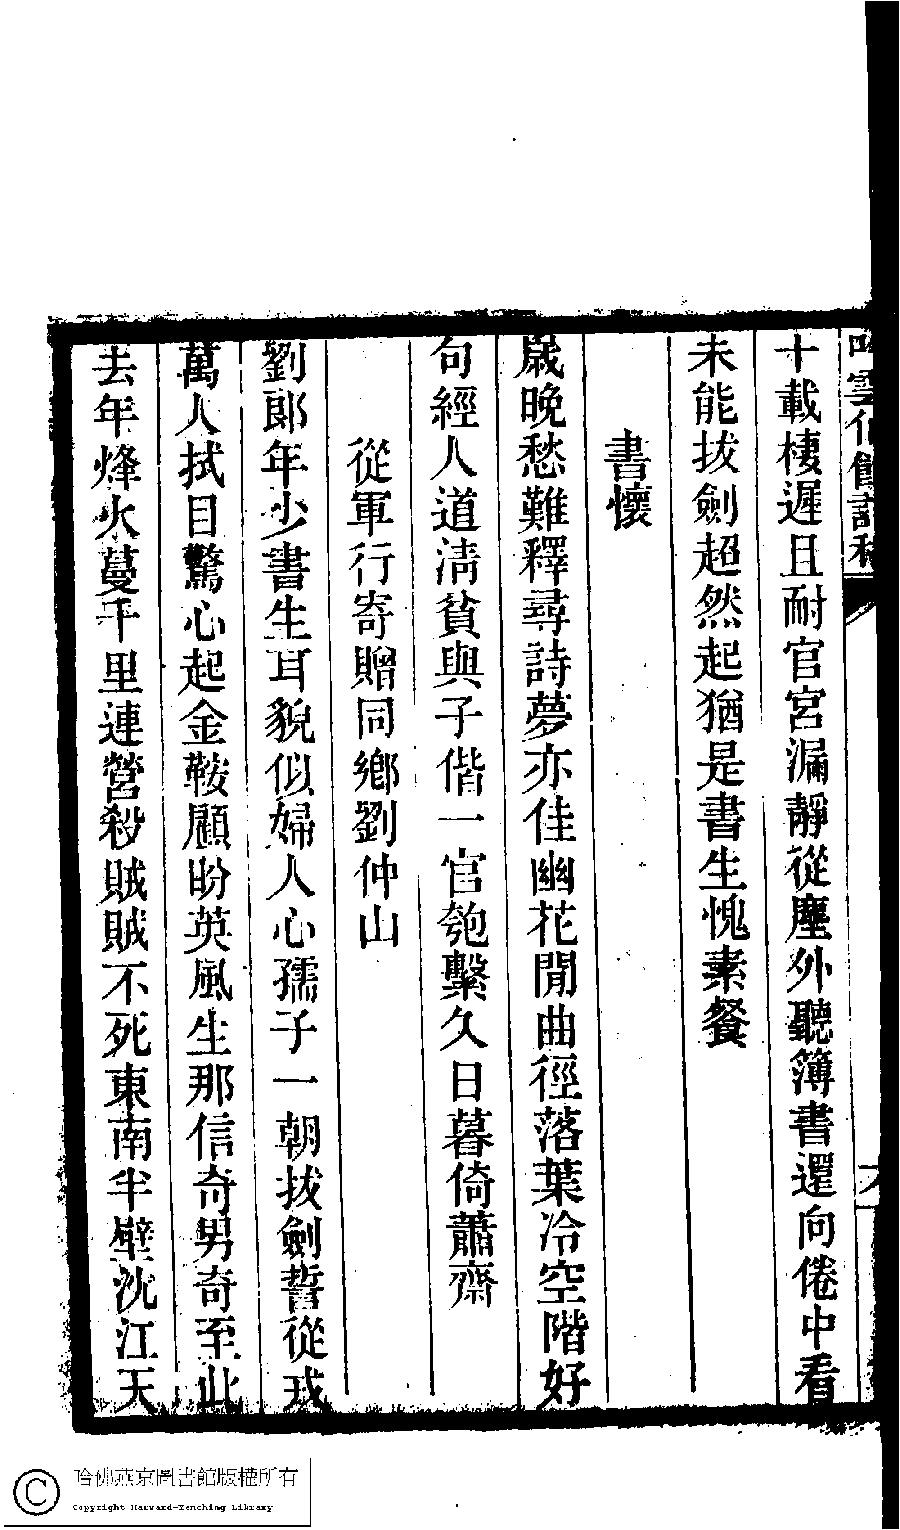 十載棲遲且耐官宮漏靜從塵外聽簿書還向倦中看
未能拔劍超然起猶是書生愧素餐
書懷
歲晚愁難釋尋詩夢亦佳幽花閒曲徑落葉冷空階好
句經人道淸貧與子偕一官匏繫久日暮倚蕭齋
從軍行寄贈同鄉劉仲山
劉郞年少書生耳貌似婦人心孺子一朝拔劍誓從戎
萬人拭目驚心起金鞍顧盼英風生那信奇男奇至此
去年烽火蔓千里連營殺賊賊不死東南半壁沈江天
哈佛燕京圖書館版權所有
Copyright Harvard-Yenching Library